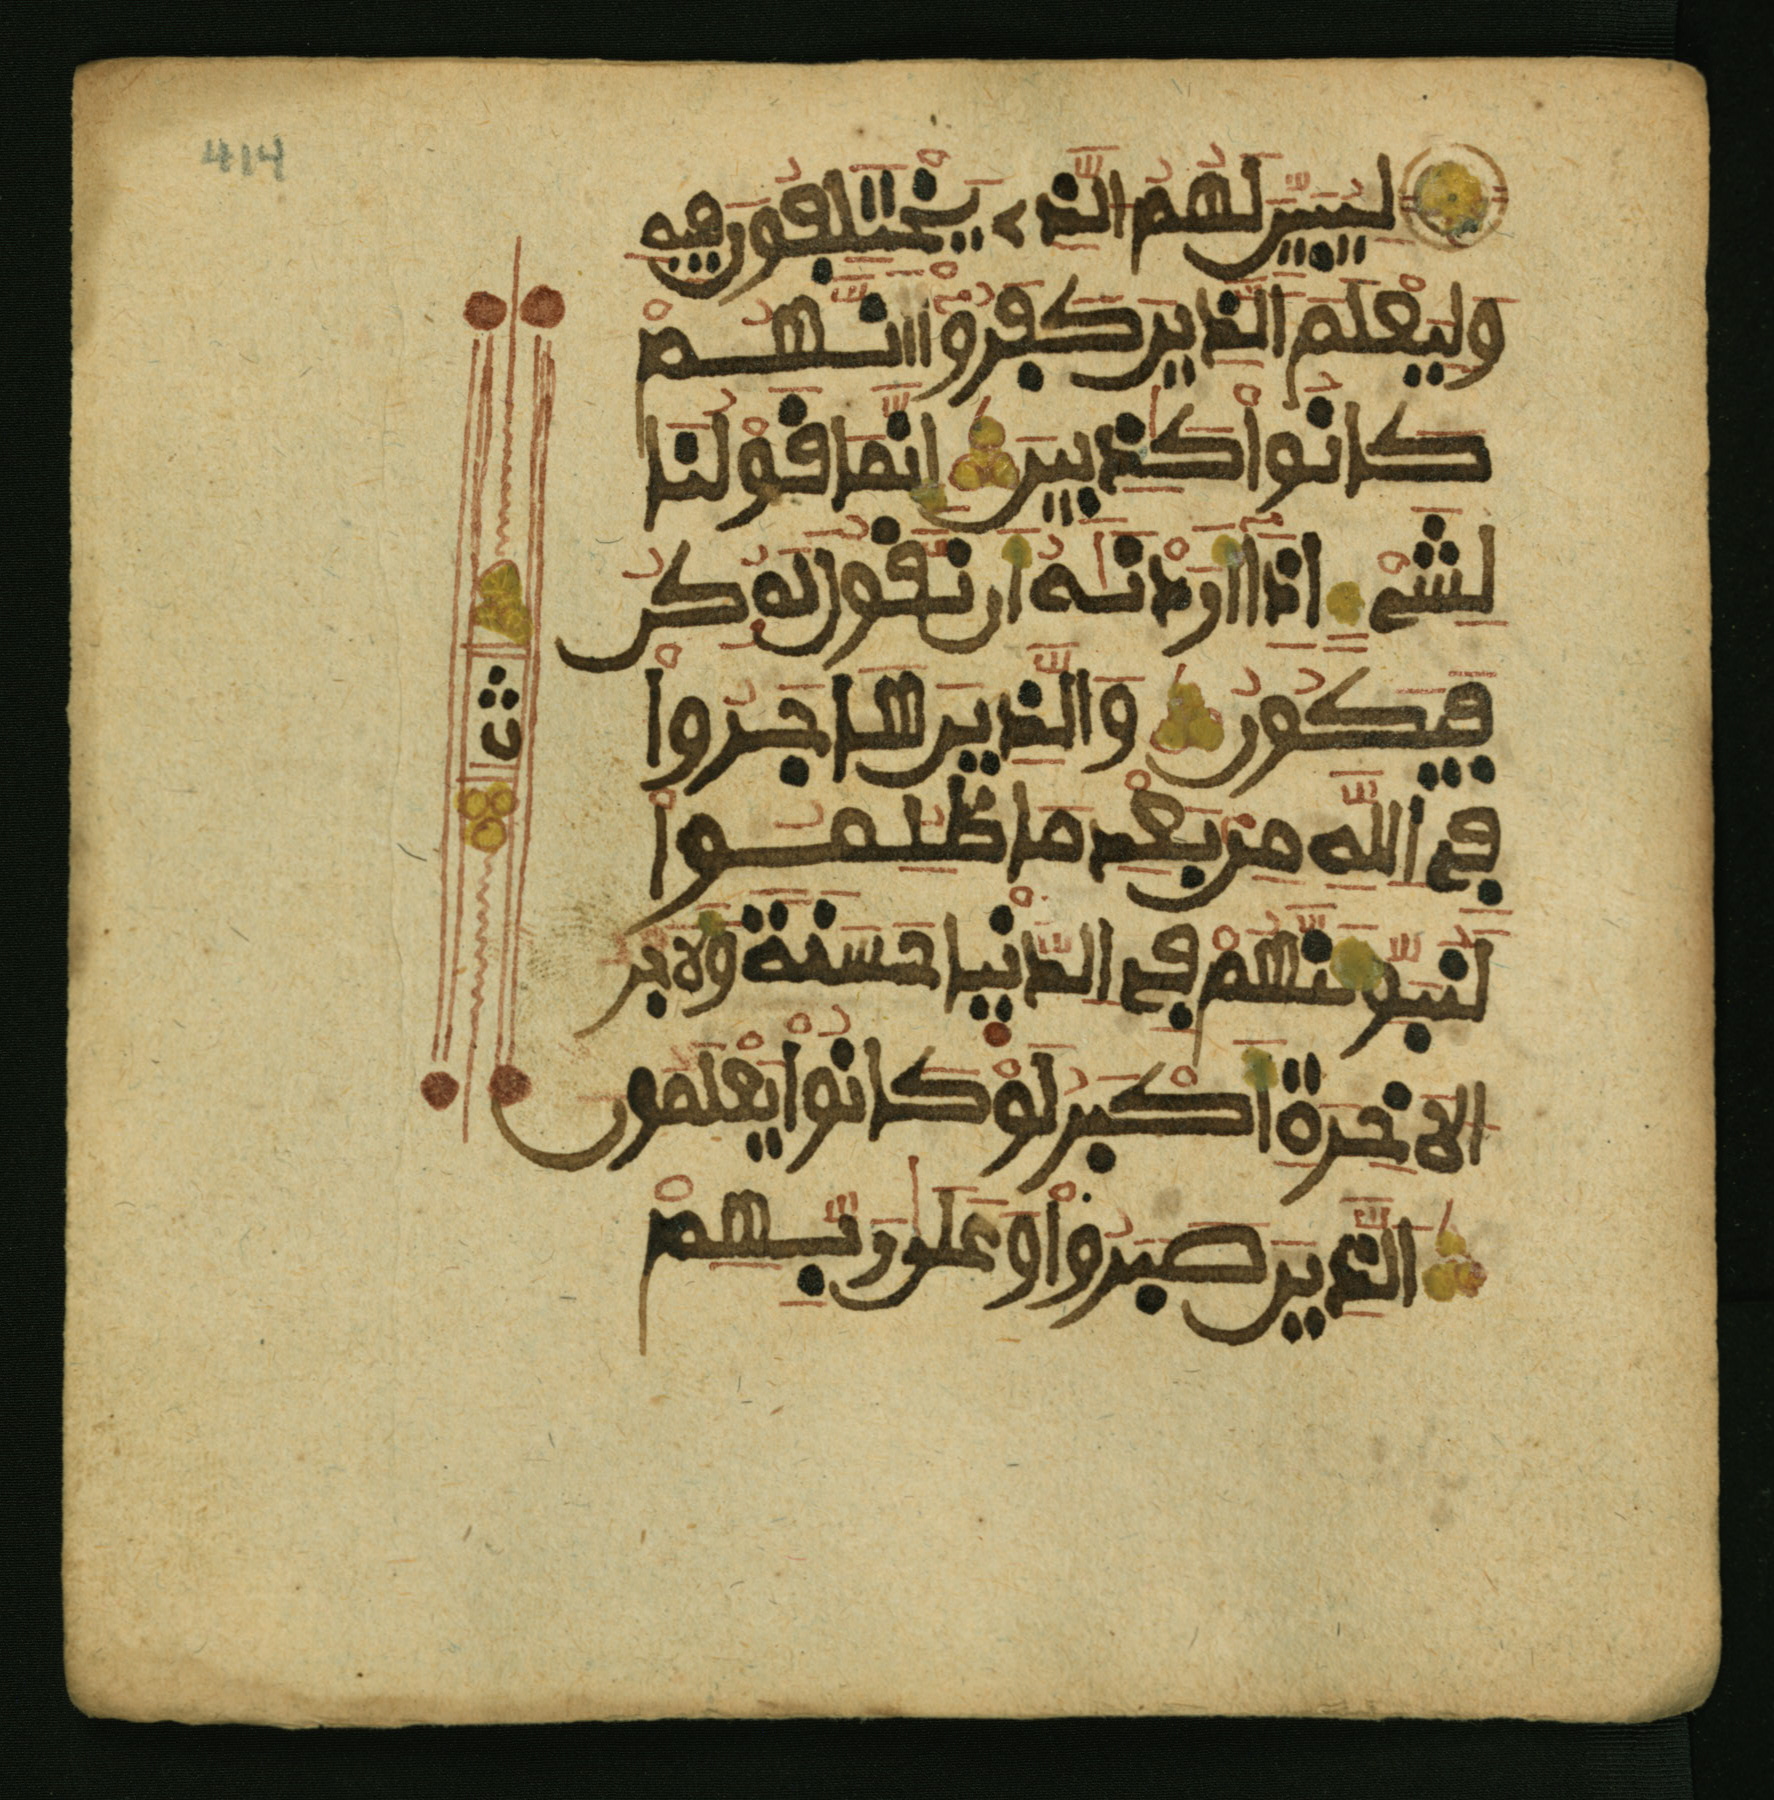 414
ليبين لهم الذي يختلفون فيه
وليعلم الذين كفروا انهم
كانوا كذبين انما قولنا
لشيء اذا اردنه ان نقول له كن
فيكون والذين هاجروا
ث
في الله من بعد ما ظلموا
لنبوئنهم في الدنيا حسنة ولاجر
الاخرة اكبر لو كانوا يعلمون
الذين صبروا وعلى ربهم